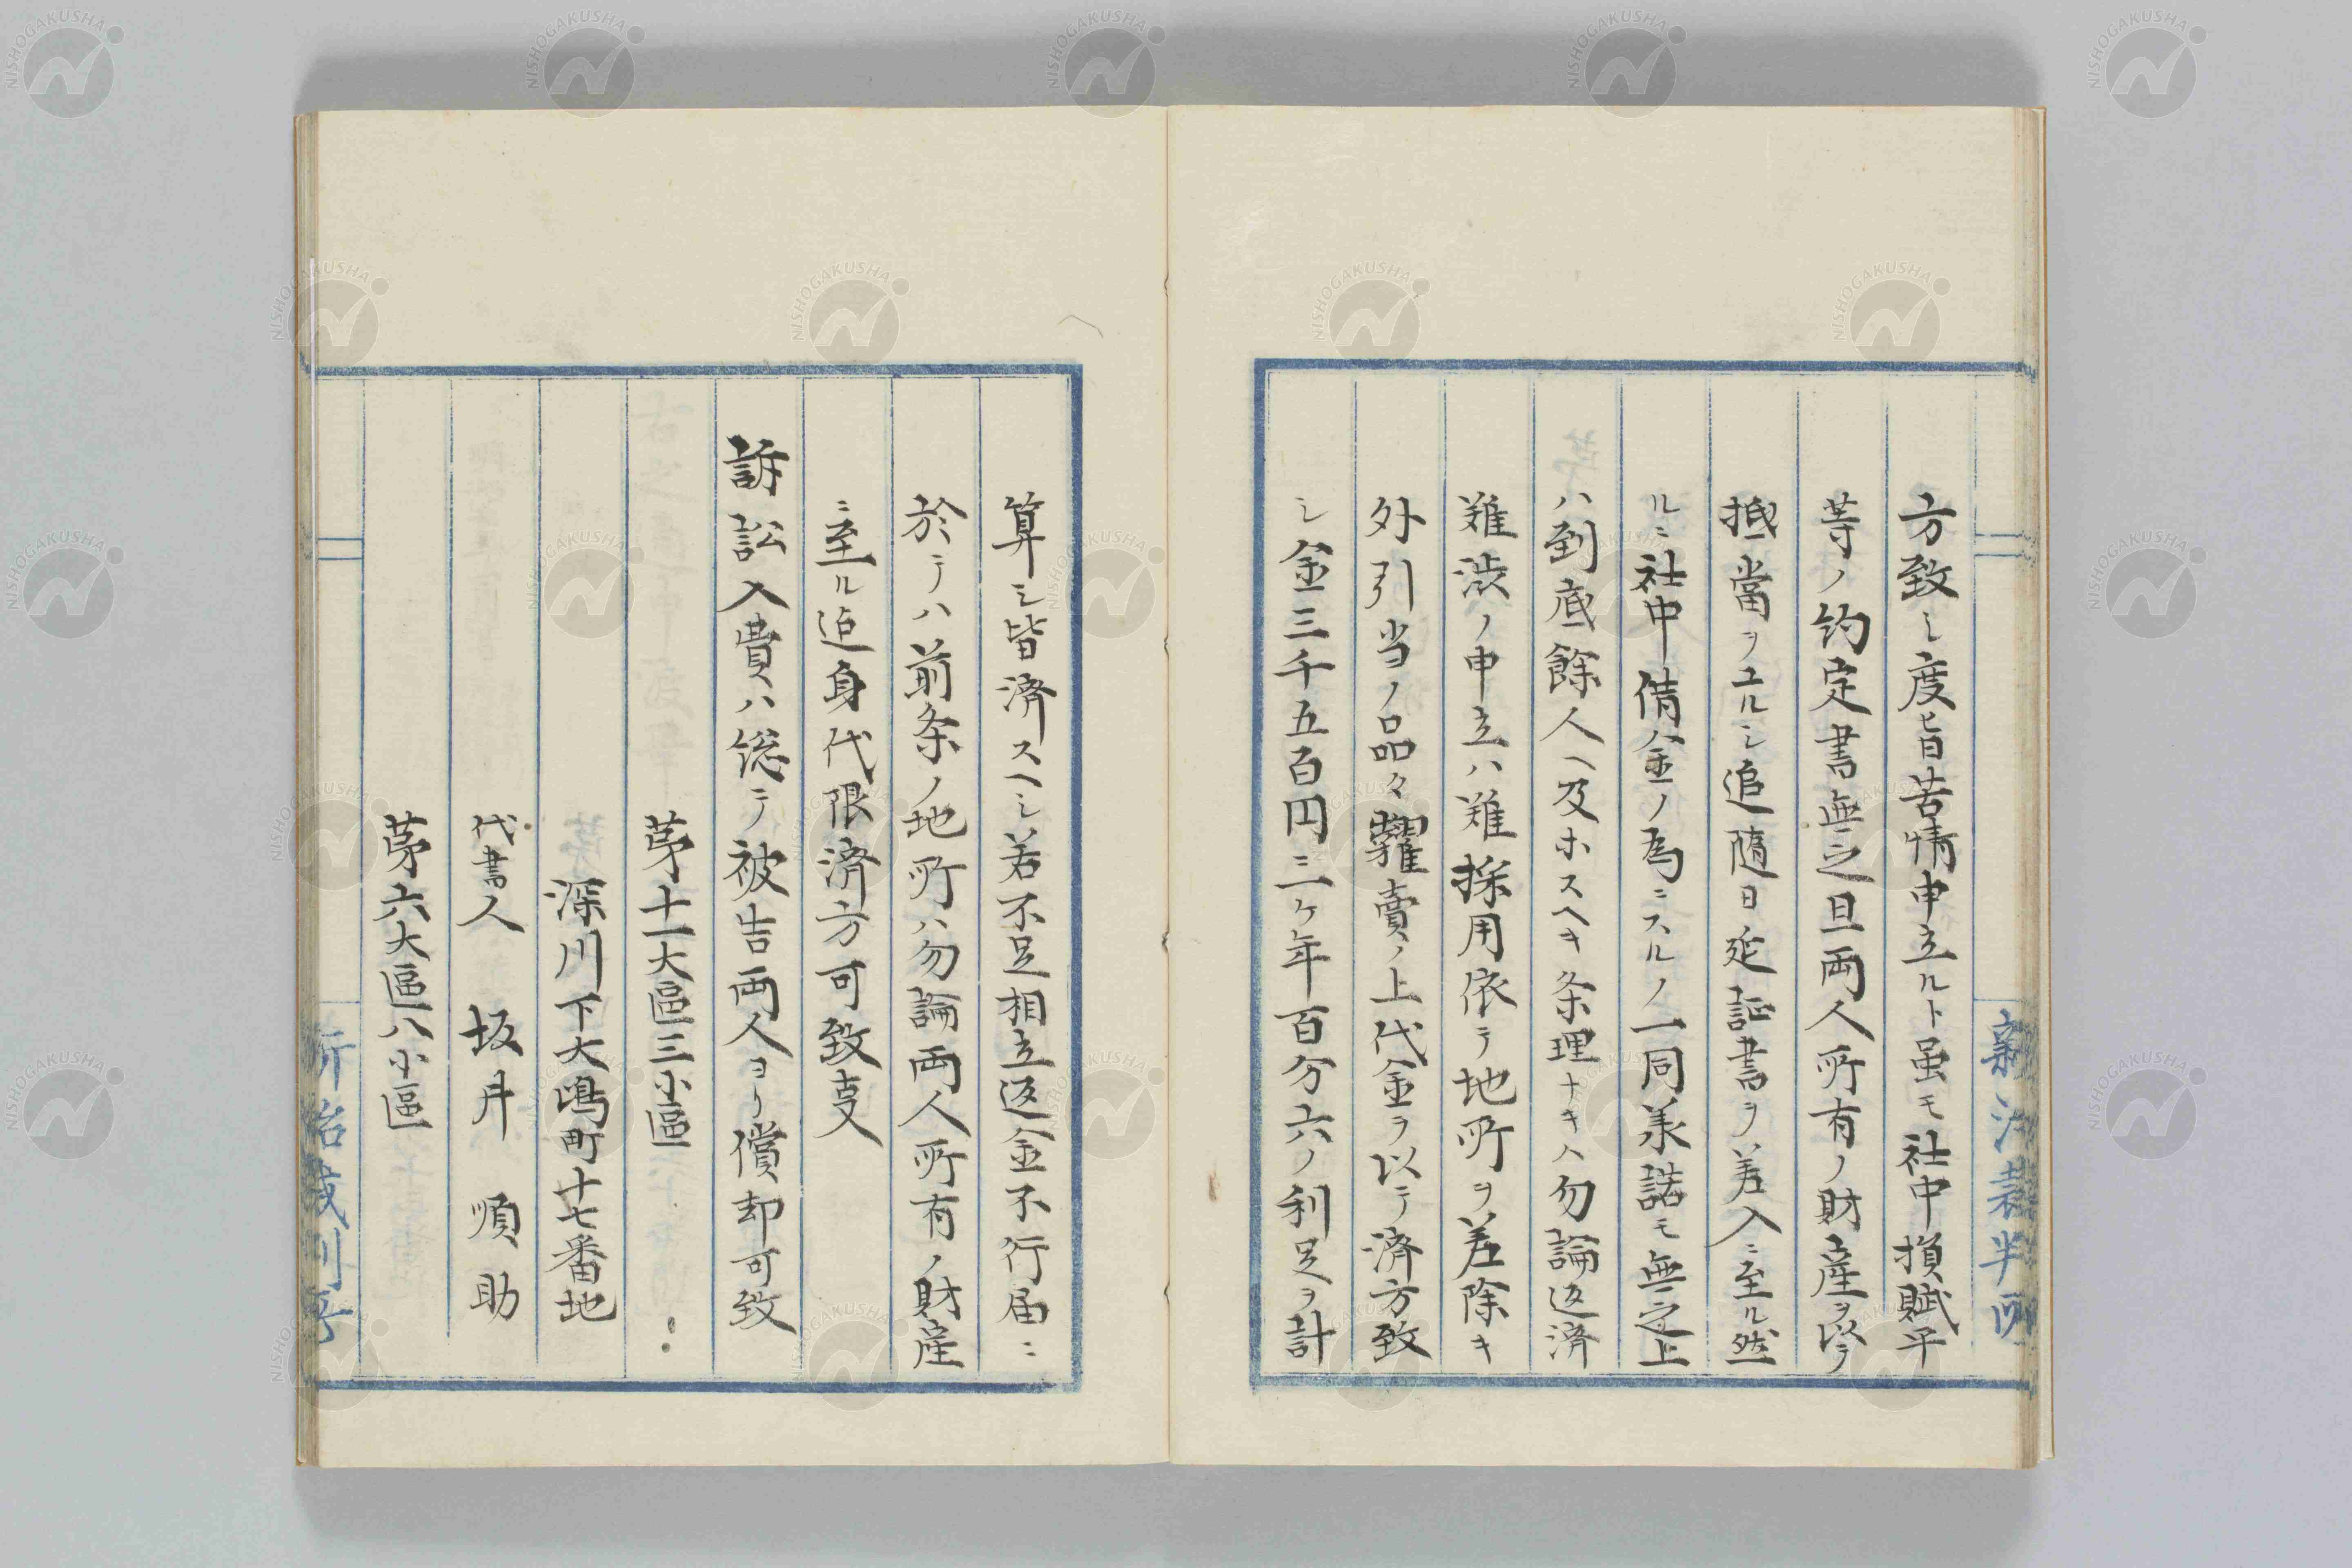 方致シ度旨苦情申立ルト虽モ社中損賦平
等ノ約定書無之旦両人所有ノ財産ヲ以テ
抵當ヲユルシ追随日延証書ヲ差入ニ至ル然
ルニ社中借金ノ為ニスルノ一同承諾モ無之上
ハ到底餘人ヘ及ホスヘキ条理ナキハ勿論返済
難渋ノ申立ハ難採用依テ地所ヲ差除キ
外引当ノ品々糶賣ノ上代金ヲ以テ済方致
シ金三千五百円三ケ年百分六ノ利足ヲ計
算シ皆済スヘシ若不足相立返金不行届ニ
於テハ前条ノ地所ハ勿論両人所有ノ財産
ニ至ル迠身代限済方可致叓
訴訟入費ハ総テ被告両人ヨリ償却可致
第十一大區三小區
深川下大嶋町十七番地
代書人 坂井順助
第六大區八小區
NISHOGAKUSHA